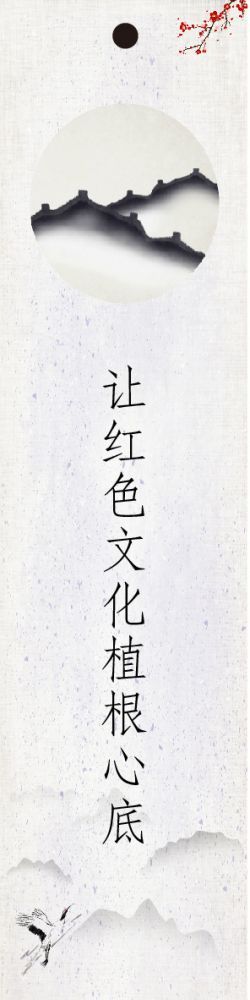 让红色文化植根心底